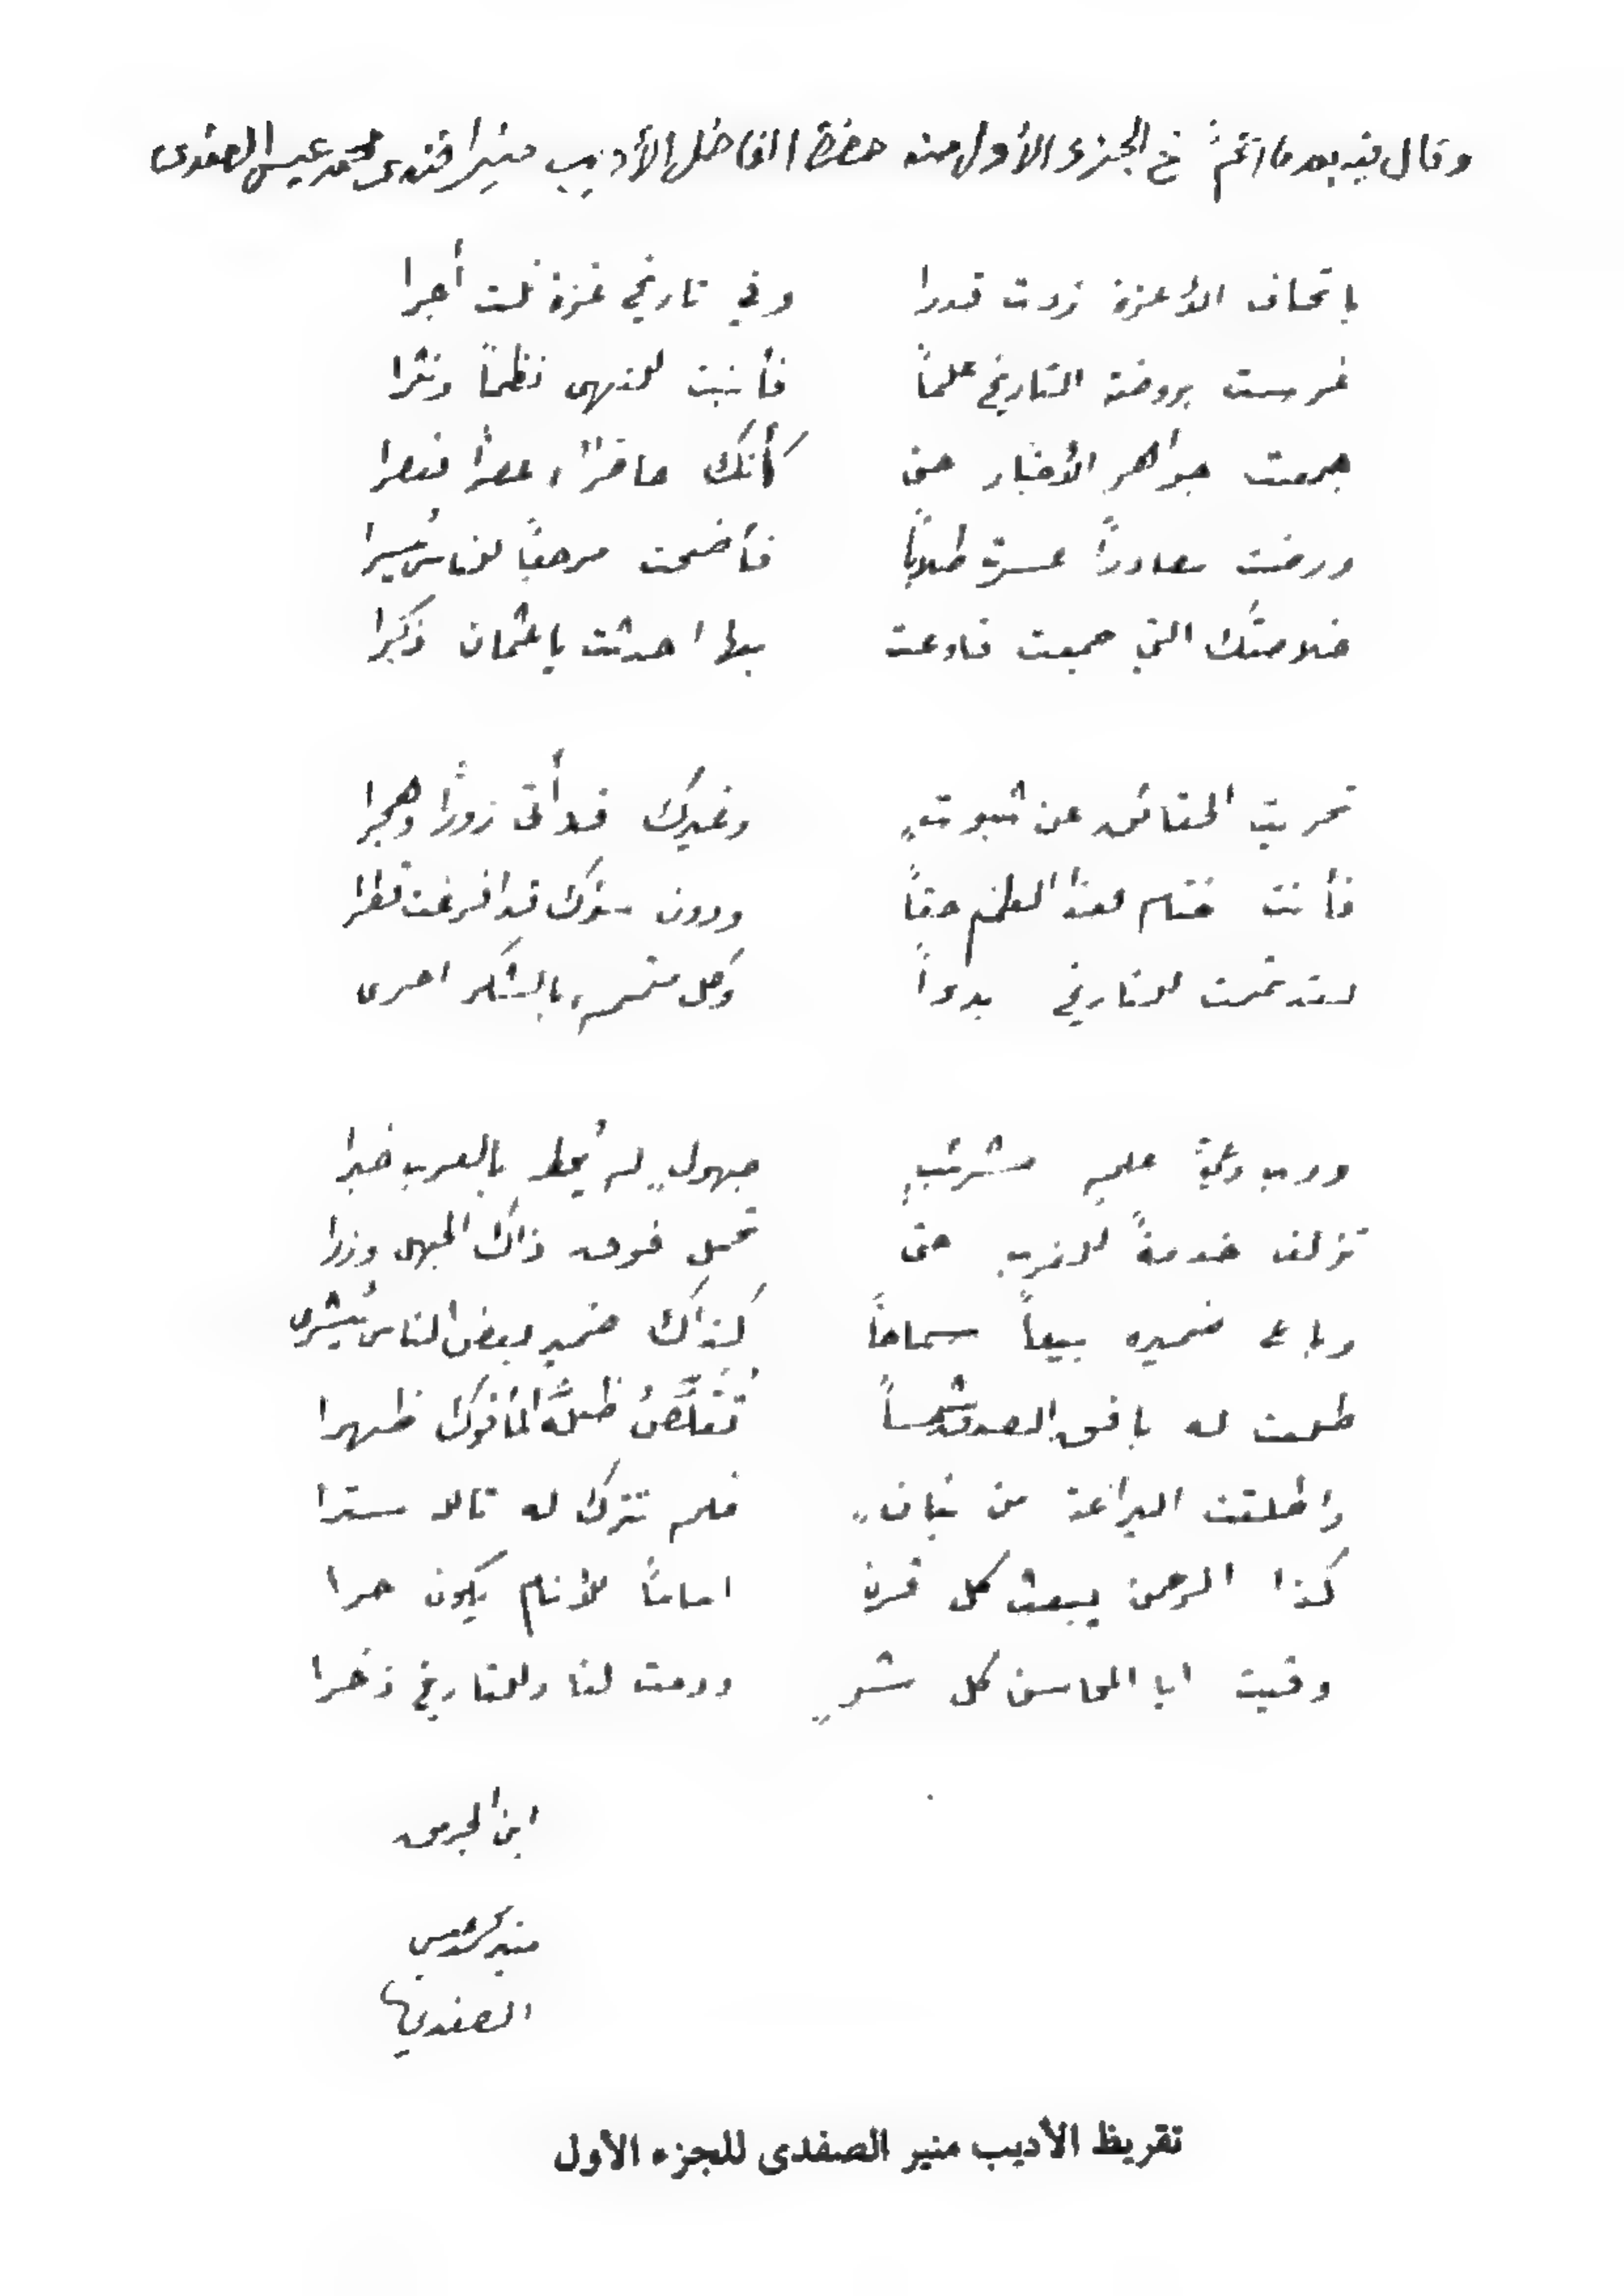 وقال فيه بعد ما أتمّ نسخ الجزء الأول منه حضرة الفاضل الأديب منير أفندى محمد عيسى الصفدى
باتحاف الأعزة زدت قدرا وفي تاريخ غزة نلت أجرا
غرست بروضة التاريخ علماً فأنبت للنهى نظماً ونثرا
جمعت جواهر الأخبار حتى كأنك حاضرٌ عصراً فعصرا
ورضت مصادراً عسرت طلاباً فأضحت مرجعاً للناس يُسرا
خلاصتك التي جمعت فاوعت بها احدثت ياعثمان ذكرا
تحريت الحقائق عن ثبوتٍ وغيرك قد أتى زوراً وهجرا
فأنت ختام هذا العلم حقاً ودون سؤك قد افرغت قطرا
لقد تممت للتاريخ بدءاً وكل متمم بالشكر احرى
ورب علم مشرئبٍ جهولٍ لم يُحط بالعرب خبرا
تزلف خدمةً للغرب حتى تحمل فوق ذاك الجهل وزرا
وباع ضميره بيعاً سماحاً كذاك ضمير بعض الناس يُشرى
طلعت له بافق الصدق شمساً تَقلَّصُ ظلَّهُ المأفوك ظهرا
واطلقت اليراعة من فلم تترك له تالله سترا
كذا الرحمن يبعث كل قرن اماماً للأنام يكون حرا
وقيت ابا المحاسن كل شرٍ ودمت لنا وللتاريخ ذخرا
منير عيسى
الصفدي
تقريظ الأديب منير الصفدى للجزء الأول